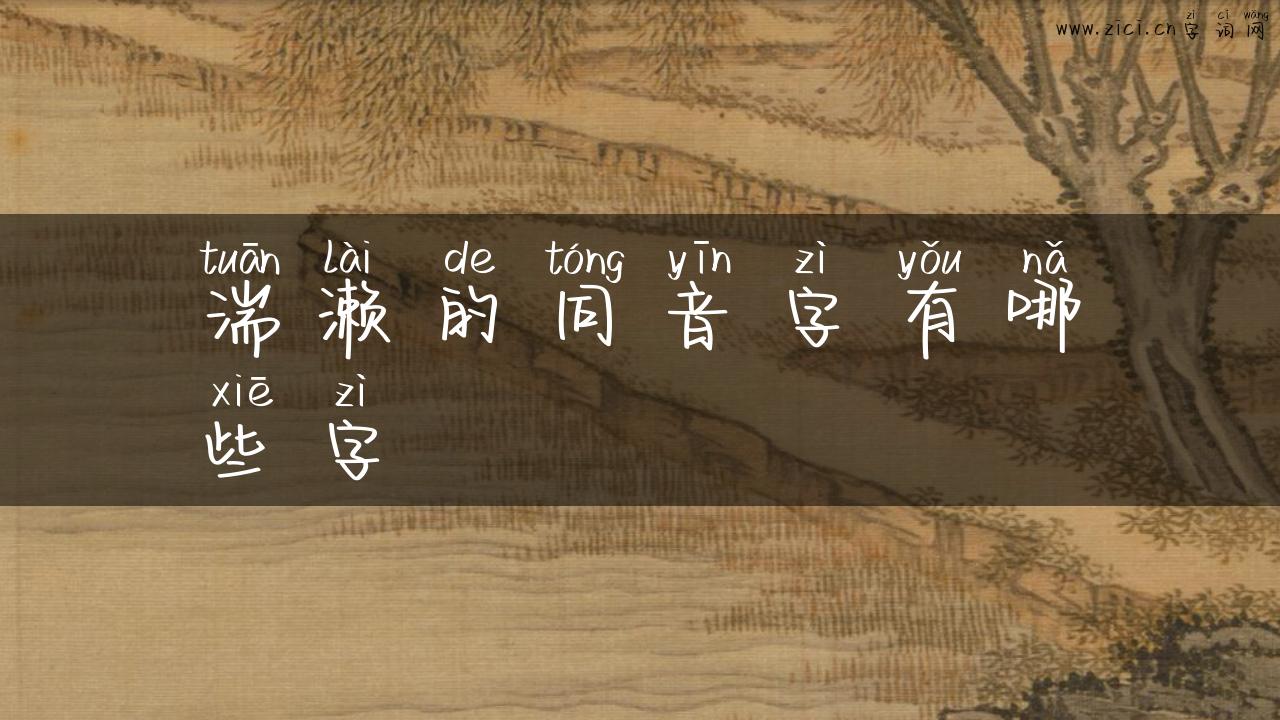 zì cí wǎng
www.zici.cn字词网
tuān lài de tóng yīn zì yǒu nǎ
湍濑的同音字有哪
xiē zì
些字